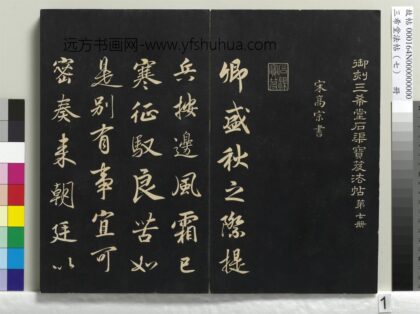 故帖 000164N000000000
三希堂法帖（七） 冊
远方书画网-www.yfshuhua.com
御刻三希堂石渠寶笈法帖第七冊
宋高宗書
卿盛秋之際提
兵按邊風霜已
寒征馭良苦如
是别有事宜可
密奏来朝廷以
1